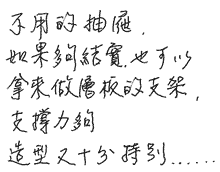 不用的抽屜，
如果夠結實，也可以
拿來做層板的支架，
支撐力夠
造型又十分特別……